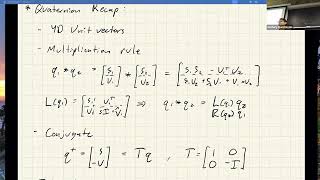 * Quaternion Recap:
- 4D Unit vectors
- Multiplication rule
q₁ * q₂ = [s₁ v₁] * [s₂ v₂] = [s₁s₂ - v₁ᵀv₂
s₁v₂ + s₂v₁ + v₁×v₂]
L(q₁) = ⇒ q₁ * q₂ = L(q₁) q₂
R(q₂) q₁
- Conjugate
q⁺ = [s -v] = Tq , T = [1 0
0 -I]